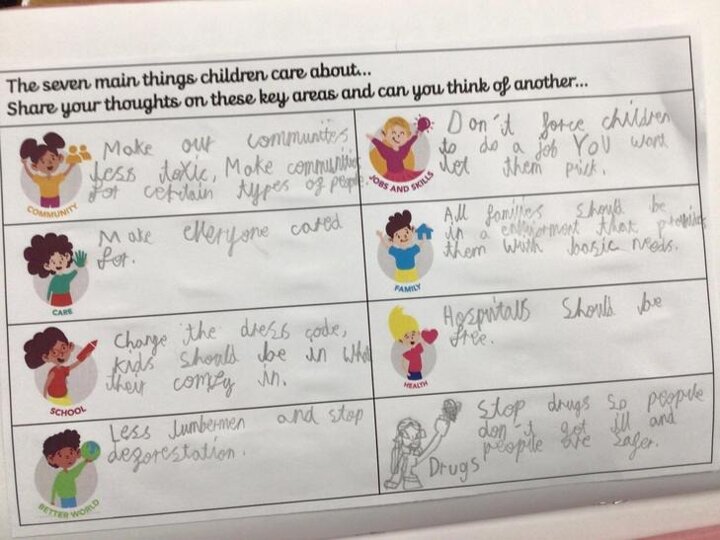 The seven main things children care about...
Share your thoughts on these key areas and can you think of another...
Make our communites
less toxic, Make communities
for certain types of people.
COMMUNITY
Don't force children
to do a job YOU want
let them pick.
JOBS AND SKILLS
Make everyone cared
for.
CARE
All families should be
in a that provides
them with basic needs.
FAMILY
Change the dress code,
kids should be in what
their comfy in.
SCHOOL
Hospitals should be
free.
HEALTH
Less lumbermen and stop
deforestation.
BETTER WORLD
Stop drugs so people
don't get ill and
people are safer.
Drugs